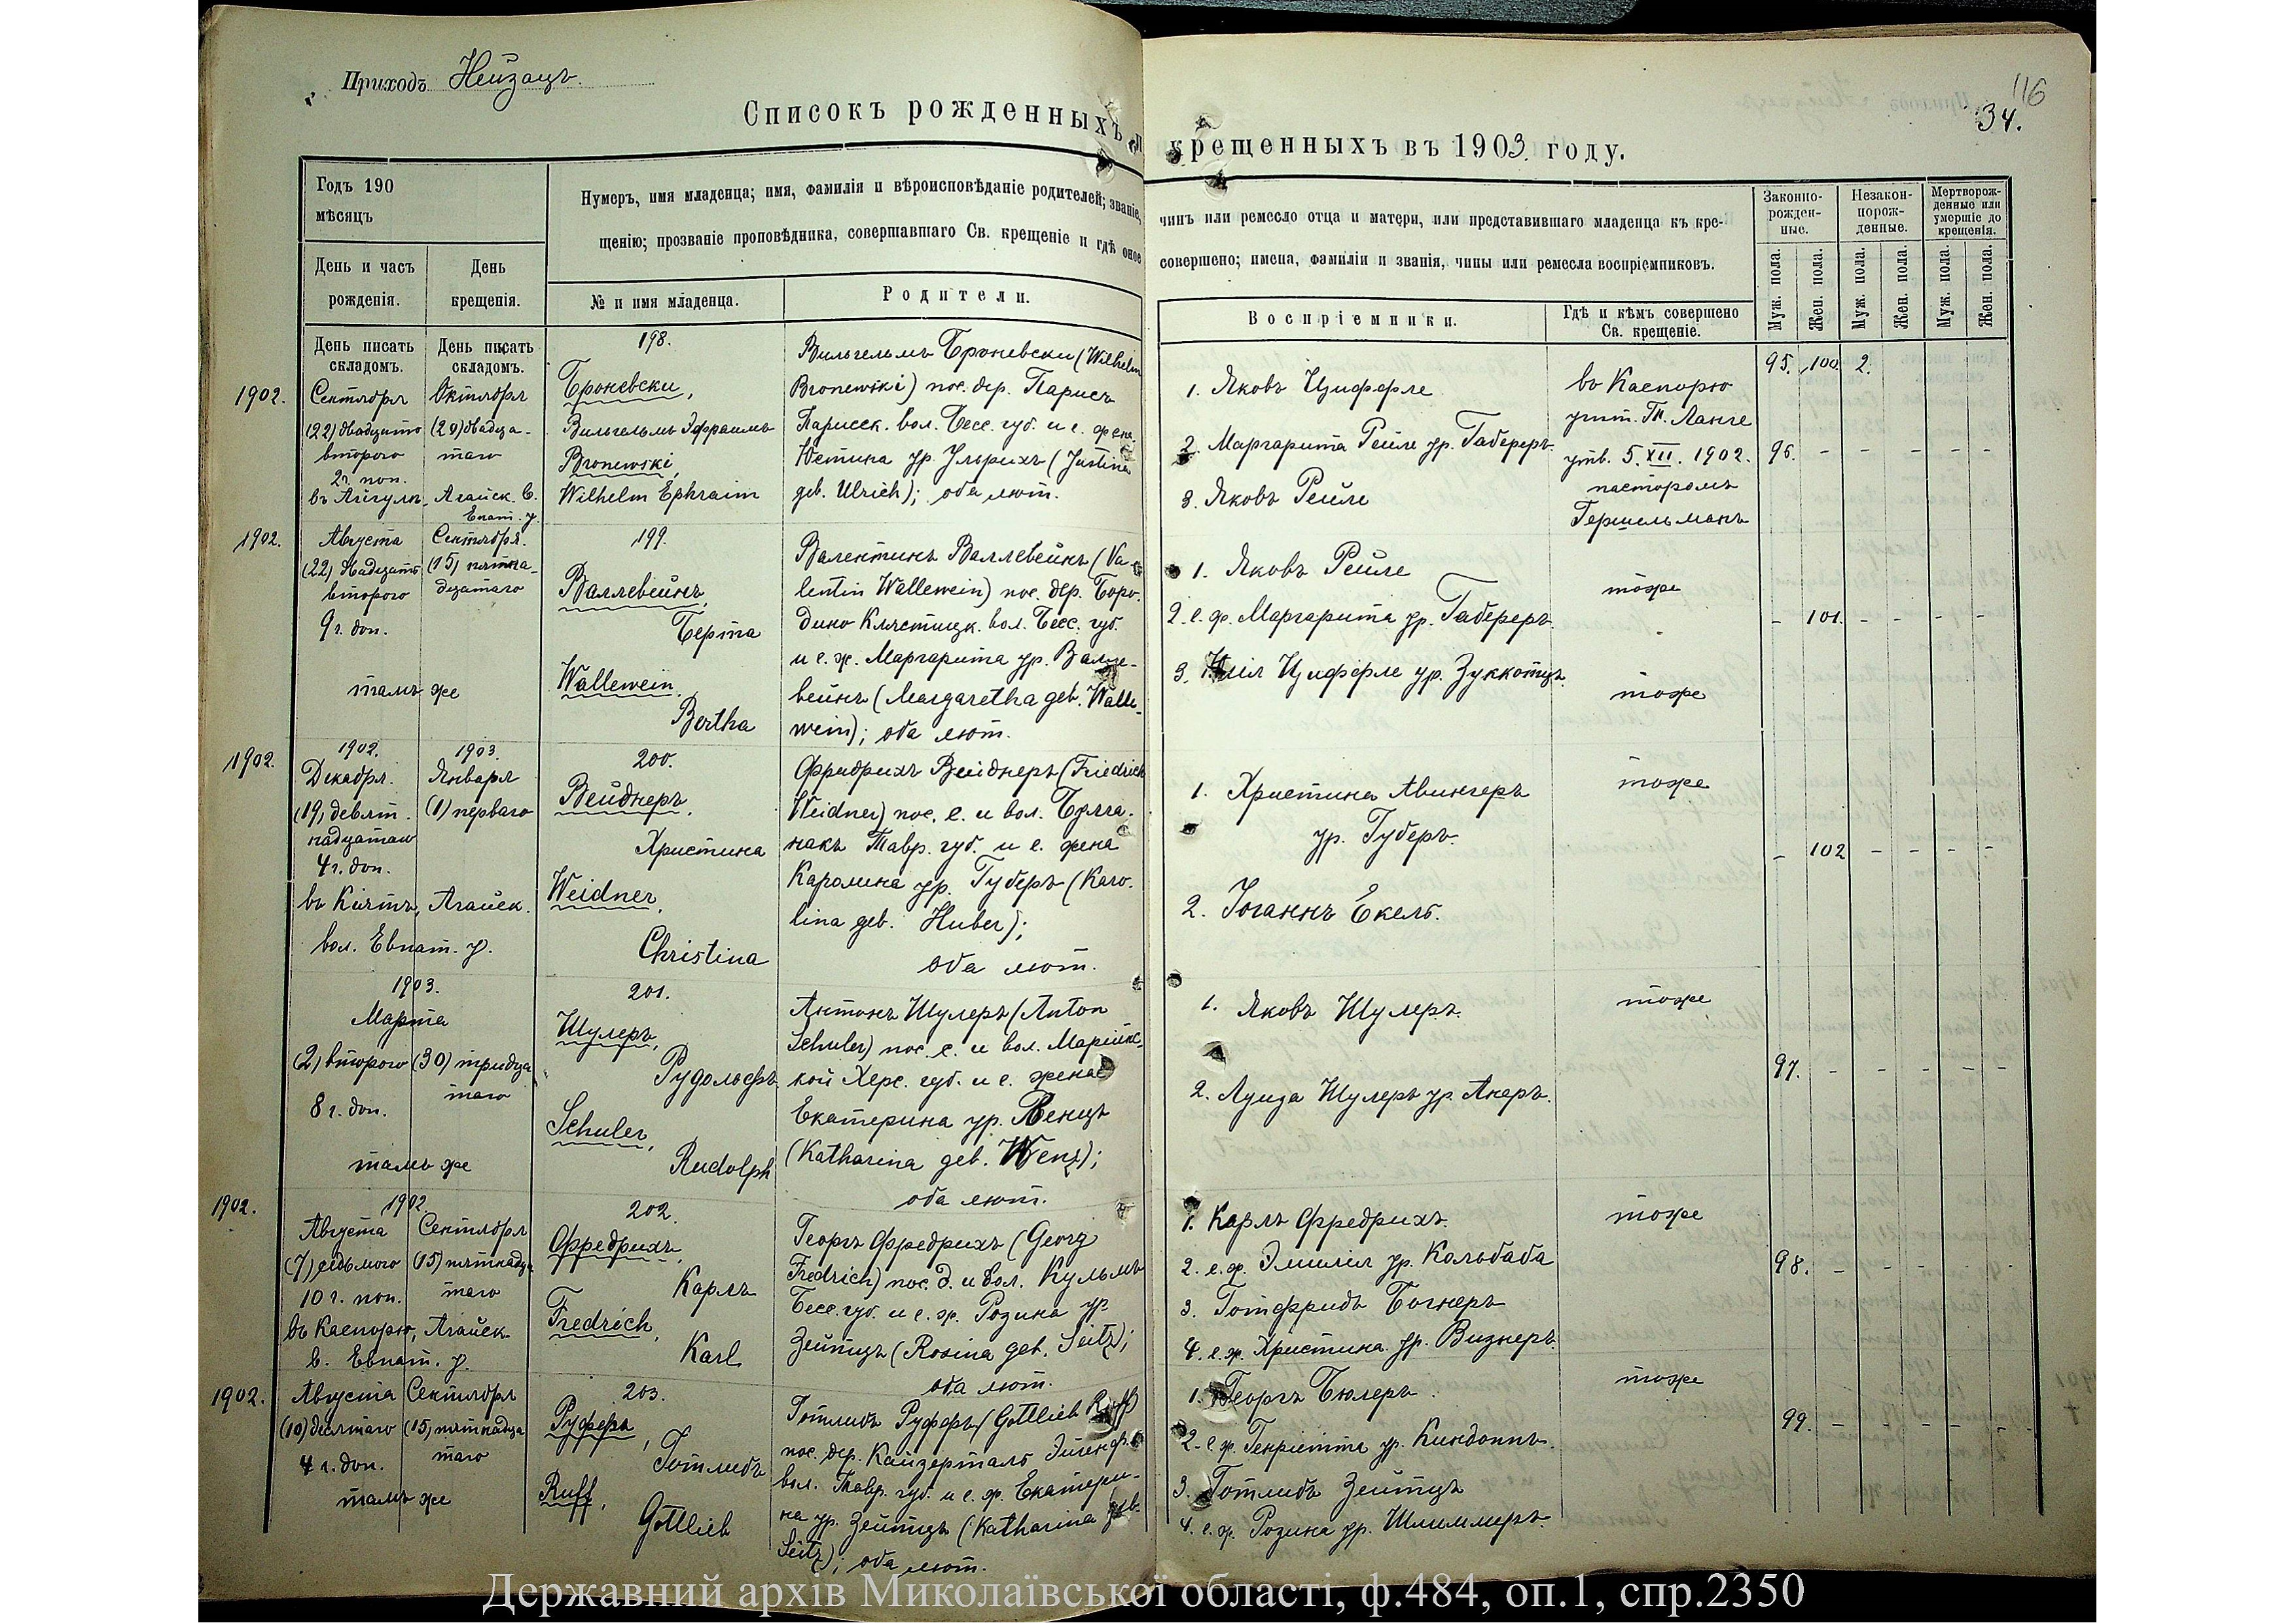 Приходъ Нейзацъ.
116
34.
Списокъ рожденныхъ и крещенныхъ въ 1903 году.
Годъ 190
мѣсяцъ
День и часъ
рожденія.
День
крещенія.
Нумеръ, имя младенца; имя, фамилія и вѣроисповѣданіе родителей; званіе,
щенію; прозваніе проповѣдника, совершавшаго Св. крещеніе и гдѣ оное
№ и имя младенца.
Родители.
чинъ или ремесло отца и матери, или представившаго младенца къ кре-
совершено; имена, фамиліи и званія, чины или ремесла воспріемниковъ.
Воспріемники.
Гдѣ и кѣмъ совершено
Св. крещеніе.
Законно-
рожден-
ные.
Незакон-
норож-
денные.
Мертворож-
денные или
умершіе до
крещенія.
Муж. пола.
Жен. пола.
Муж. пола.
Жен. пола.
Муж. пола.
Жен. пола.
День писать
складомъ.
День писать
складомъ.
95. 100. 2.
1902.
Сентября
(22) двадцать
второго
2 ч. поп.
Октября
(20) двадца-
таго
Агайск. в.
Евпат. у.
198.
Броневски,
Вильгельмъ Эфраимъ
Bronewski,
Wilhelm Ephraim
Вильгельмъ Броневски (Wilhelm
Bronewski) пос. дер. Парижъ
Парижск. вол. Бесс. губ. и е. жена
Юстина ур. Ульрихъ (Justina
geb. Ulrich); оба лют.
1. Яковъ Циффле
2. Маргарита Рейле ур. Габереръ
3. Яковъ Рейле
въ Каспорю
учит. Гт. Ланге
утв. 5. XII. 1902.
пасторомъ
Гершельманъ
96. - - - - -
1902.
Августа
(22) двадцать
второго
9 ч. доп.
Сентября.
(15) пятна-
дцатаго
тамъ же
199.
Валлевейнъ,
Берта
Wallewein,
Bertha
Валентинъ Валлевейнъ (Va-
lentin Wallewein) пос. дер. Боро-
дино Клястицк. вол. Бесс. губ.
и е. ж. Маргарита ур. Валле-
вейнъ (Margaretha geb. Walle-
wein); оба лют.
1. Яковъ Рейле
2. е. ж. Маргарита ур. Габереръ
3. Цифферле ур. Зуккотцъ
тоже
тоже
- 101. - - - -
1902.
1902.
Декабря.
(19) девят-
надцатаго
4 ч. доп.
1903.
Января
(1) перваго
въ Кіятъ, Агайск.
вол. Евпат. у.
200.
Вейднеръ,
Христина
Weidner,
Christina
Фридрихъ Вейднеръ (Friedrich
Weidner) пос. с. и вол. Булга-
накъ Тавр. губ. и е. жена
Каролина ур. Губеръ (Karo-
lina geb. Huber);
оба лют.
1. Христина Авингеръ
ур. Губеръ.
2. Іоганнъ Екель.
тоже
- 102 - - - -
1903.
Марта
(2) второго
8 ч. доп.
(30) тридца-
таго
тамъ же
201.
Шулеръ,
Рудольфъ
Schuler,
Rudolph
Антонъ Шулеръ (Anton
Schuler) пос. с. и вол. Маріинс-
кой Херс. губ. и е. жена
Екатерина ур. Венцъ
(Katharina geb. Wenz);
оба лют.
1. Яковъ Шулеръ.
2. Луиза Шулеръ ур. Акеръ.
тоже
97. - - - - -
1902.
1902.
Августа
(7) седьмого
10 ч. поп.
Сентября
(15) пятнадца
таго
въ Каспорю, Агайск.
в. Евпат. у.
202.
Фредрихъ,
Карлъ
Fredrich,
Karl
Георгъ Фредрихъ (Georg
Fredrich) пос. д. и вол. Кульмъ
Бесс. губ. и е. ж. Розина ур.
Зейтцъ (Rosina geb. Seitz);
оба лют.
1. Карлъ Фредрихъ.
2. е. ж. Эмилія ур. Кольбаба
3. Готфридъ Богнеръ
4. е. ж. Христина ур. Визнеръ.
тоже
98. - - - - -
1902.
Августа
(10) десятаго
4 ч. доп.
Сентября
(15) пятнадца
таго
тамъ же
203.
Руффъ,
Готлибъ
Ruff,
Gottlieb
Готлибъ Руффъ (Gottlieb Ruff)
пос. дер. Кайзерталь Эйгенф.
вол. Тавр. губ. и е. ж. Екатери-
на ур. Зейтцъ (Katharina geb.
Seitz); оба лют.
1. Георгъ Бюлеръ.
2. е. ж. Генріетта ур. Киндоппъ.
3. Готлибъ Зейтцъ
4. е. ж. Розина ур. Шлиммеръ.
тоже
99. - - - - -
Державний архів Миколаївської області, ф.484, оп.1, спр.2350